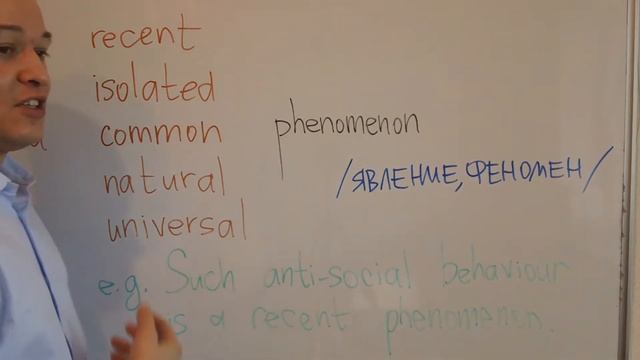 recent
isolated
common
natural
universal
phenomenon
/ЯВЛЕНИЕ, ФЕНОМЕН/
e.g. Such anti-social behaviour
is a recent phenomenon.